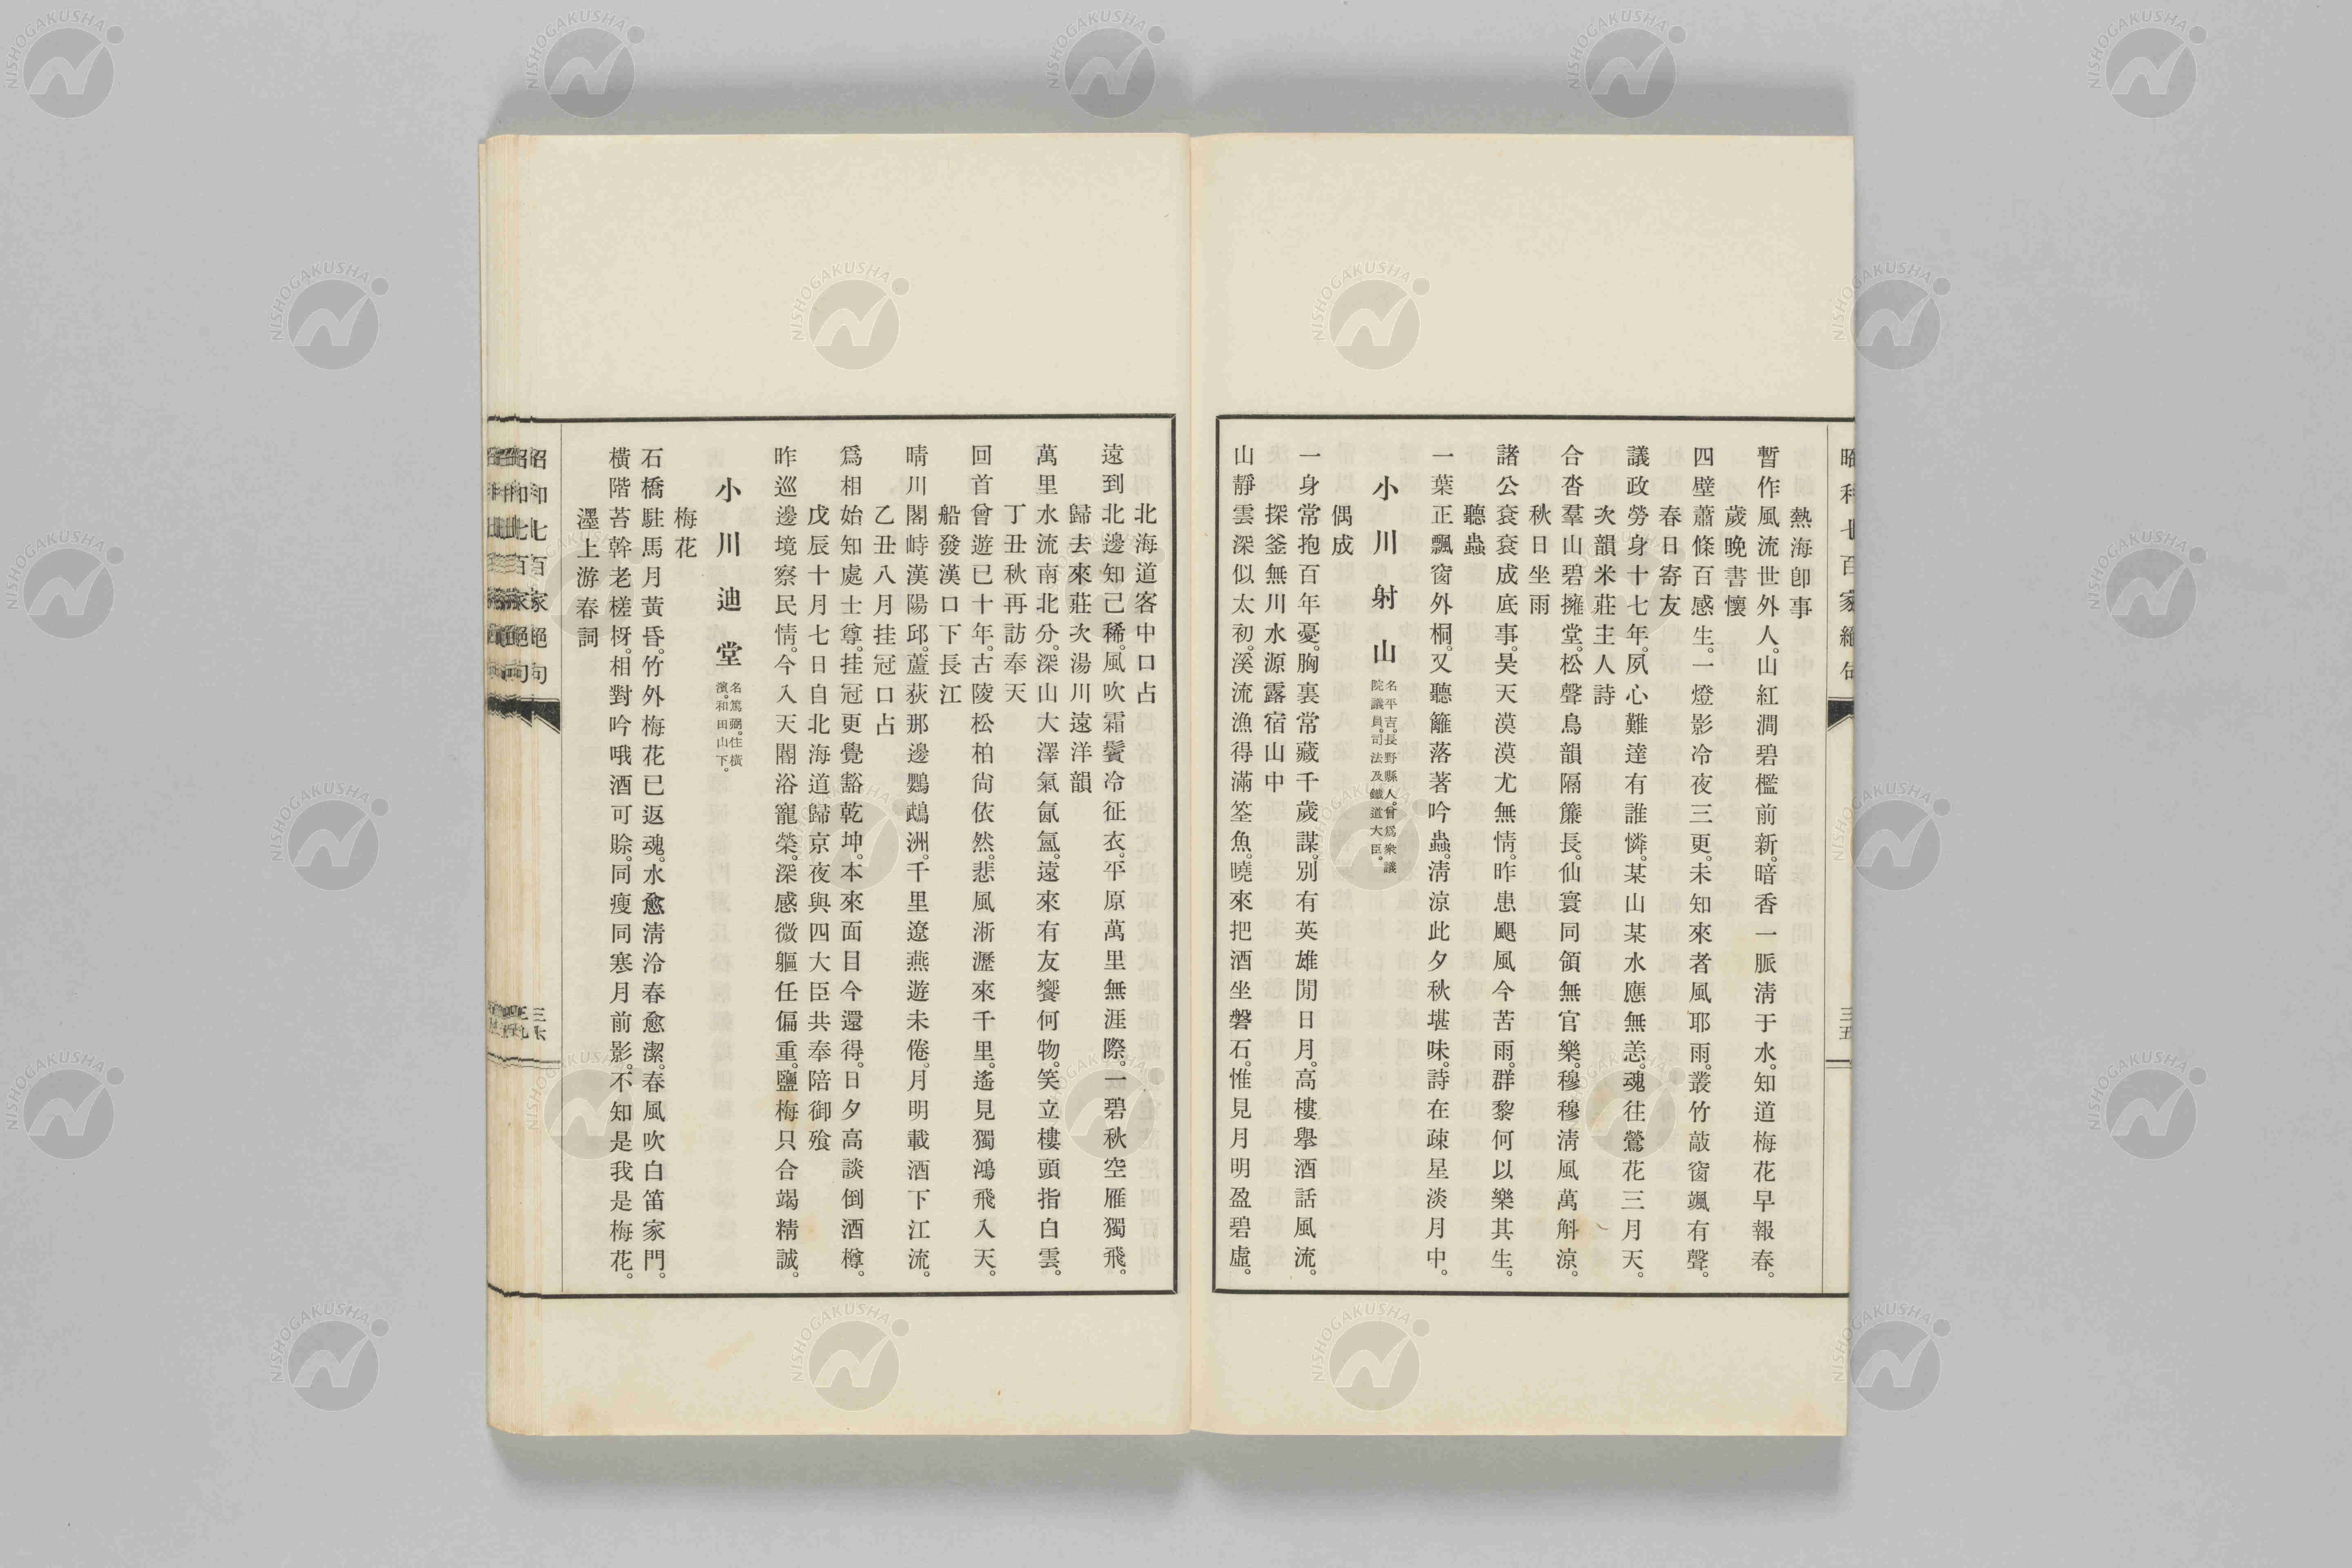 昭和七百家絕句
三五
熱海卽事
暫作風流世外人。山紅澗碧檻前新。暗香一脈淸于水。知道梅花早報春。
歲晩書懷
四壁蕭條百感生。一燈影冷夜三更。未知來者風耶雨。叢竹敲窗颯有聲。
春日寄友
議政勞身十七年。夙心難達有誰憐。某山某水應無恙。魂往鶯花三月天。
次韻米莊主人詩
合沓羣山碧擁堂。松聲鳥韻隔簾長。仙寰同領無官樂。穆穆淸風萬斛涼。
秋日坐雨
諸公袞袞成底事。昊天漠漠尤無情。昨患颶風今苦雨。群黎何以樂其生。
聽蟲
一葉正飄窗外桐。又聽籬落著吟蟲。淸涼此夕秋堪味。詩在疎星淡月中。
小川射山
名平吉。長野縣人。曾爲衆議
院議員。司法及鐵道大臣。
偶成
一身常抱百年憂。胸裏常藏千歲謀。別有英雄閒日月。高樓擧酒話風流。
探釜無川水源露宿山中
山靜雲深似太初。溪流漁得滿筌魚。曉來把酒坐磐石。惟見月明盈碧虛。
北海道客中口占
遠到北邊知己稀。風吹霜鬢冷征衣。平原萬里無涯際。一碧秋空雁獨飛。
歸去來莊次湯川遠洋韻
萬里水流南北分。深山大澤氣氤氳。遠來有友饗何物。笑立樓頭指白雲。
丁丑秋再訪奉天
回首曾遊已十年。古陵松柏尙依然。悲風淅瀝來千里。遙見獨鴻飛入天。
船發漢口下長江
晴川閣峙漢陽邱。蘆荻那邊鸚鵡洲。千里遼燕遊未倦。月明載酒下江流。
乙丑八月挂冠口占
爲相始知處士尊。挂冠更覺豁乾坤。本來面目今還得。日夕高談倒酒樽。
戊辰十月七日自北海道歸京夜與四大臣共奉陪御飧
昨巡邊境察民情。今入天閽浴寵榮。深感微軀任偏重。鹽梅只合竭精誠。
小川迪堂
名篤弼。住橫
濱。和田山下。
梅花
石橋駐馬月黃昏。竹外梅花已返魂。水愈淸泠春愈潔。春風吹白笛家門。
橫階苔幹老槎枒。相對吟哦酒可賒。同瘦同寒月前影。不知是我是梅花。
墨上游春詞
昭和七百家絕句
三六